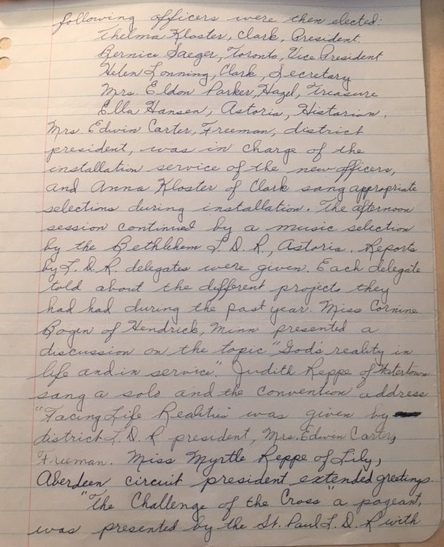 following officers were then elected:
Thelma Kloster, Clark, President
Bernice Saeger, Toronto, Vice President
Helen Lonning, Clark, Secretary
Mrs. Eldon Parker, Hazel, Treasure
Ella Hansen, Astoria, Historian.
Mrs. Edwin Carter, Freeman, district
president, was in charge of the
installation service of the new officers,
and Anna Kloster of Clark sang appropriate
selections during installation. The afternoon
session continued by a music selection
by the Bethlehem L.D.R., Astoria. Reports
by L.D.R. delegates were given. Each delegate
told about the different projects they
had had during the past year. Miss Cornine
Bogin of Hendrick, Minn presented a
discussion on the topic "God's reality in
life and in service." Judith Reppe of Watertown
sang a solo and the convention address
"Facing Life Realities" was given by
district L.D.R president, Mrs. Edwin Carter,
Freeman. Miss Myrtle Reppe of Lily,
Aberdeen circuit president extended greetings.
"The Challenge of the Cross" a pageant,
was presented by the St. Paul L.D.R with